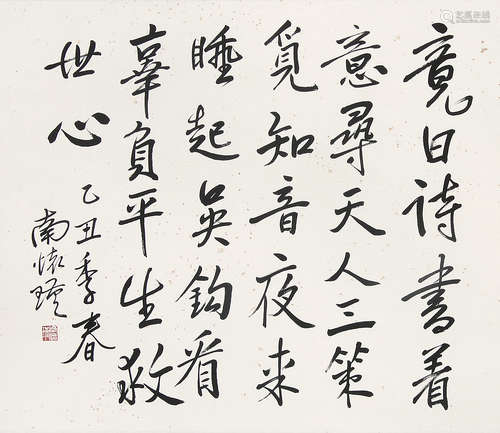 竟日诗书着
意尋天人三策
覓知音夜来
睡起吴鈎看
辜負平生救
世心
乙丑季春
南懷瑾